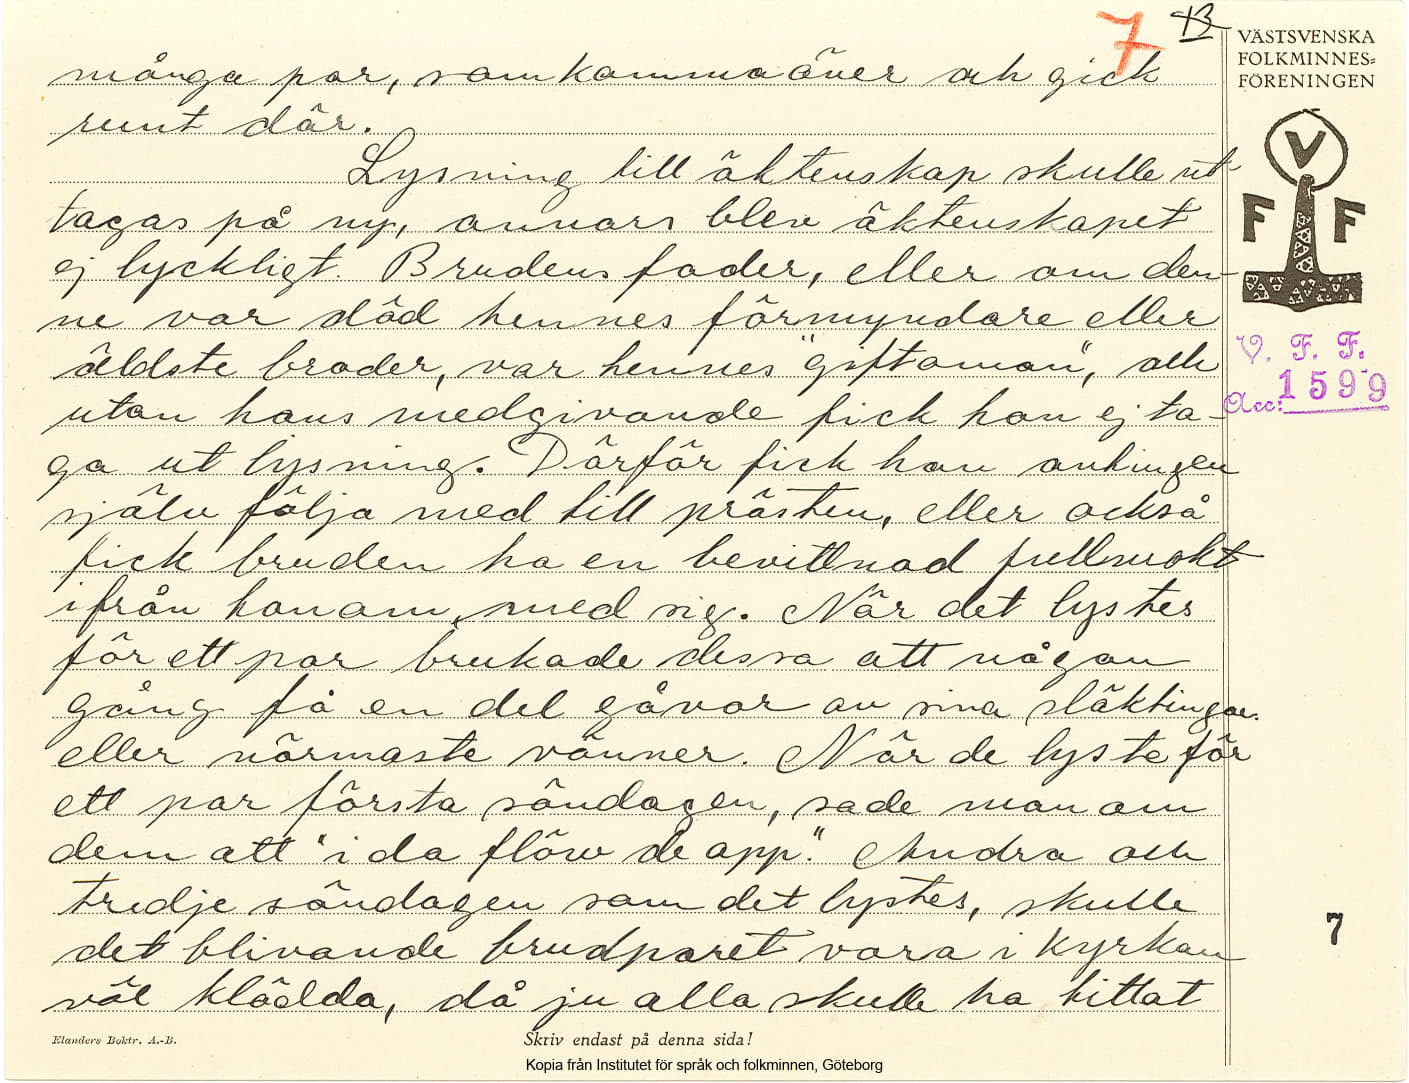 7 B
många par, som komma över och gick
runt där.
Lysning till äktenskap skulle ut-
tagas på ny, annars blev äktenskapet
ej lyckligt. Brudens fader, eller om den-
ne var död hennes förmyndare eller
äldste broder, var hennes "giftoman", och
utan hans medgivande fick hon ej ta-
ga ut lysning. Därför fick han antingen
själv följa med till prästen, eller också
fick bruden ha en bevittnad fullmakt
ifrån honom, med sig. När det lystes
för ett par brukade dessa att någon
gång få en del gåvor av sina släktingar
eller närmaste vänner. När de lyste för
ett par första söndagen, sade man om
dem att "i da flöw de app". Andra och
tredje söndagen som det lystes, skulle
det blivande brudparet vara i kyrkan
väl klädda, då ju alla skulle ha tittat
VÄSTSVENSKA
FOLKMINNES-
FÖRENINGEN
V
F F
V. F. F.
Acc: 1599
7
Elanders Boktr. A.-B.
Skriv endast på denna sida!
Kopia från Institutet för språk och folkminnen, Göteborg